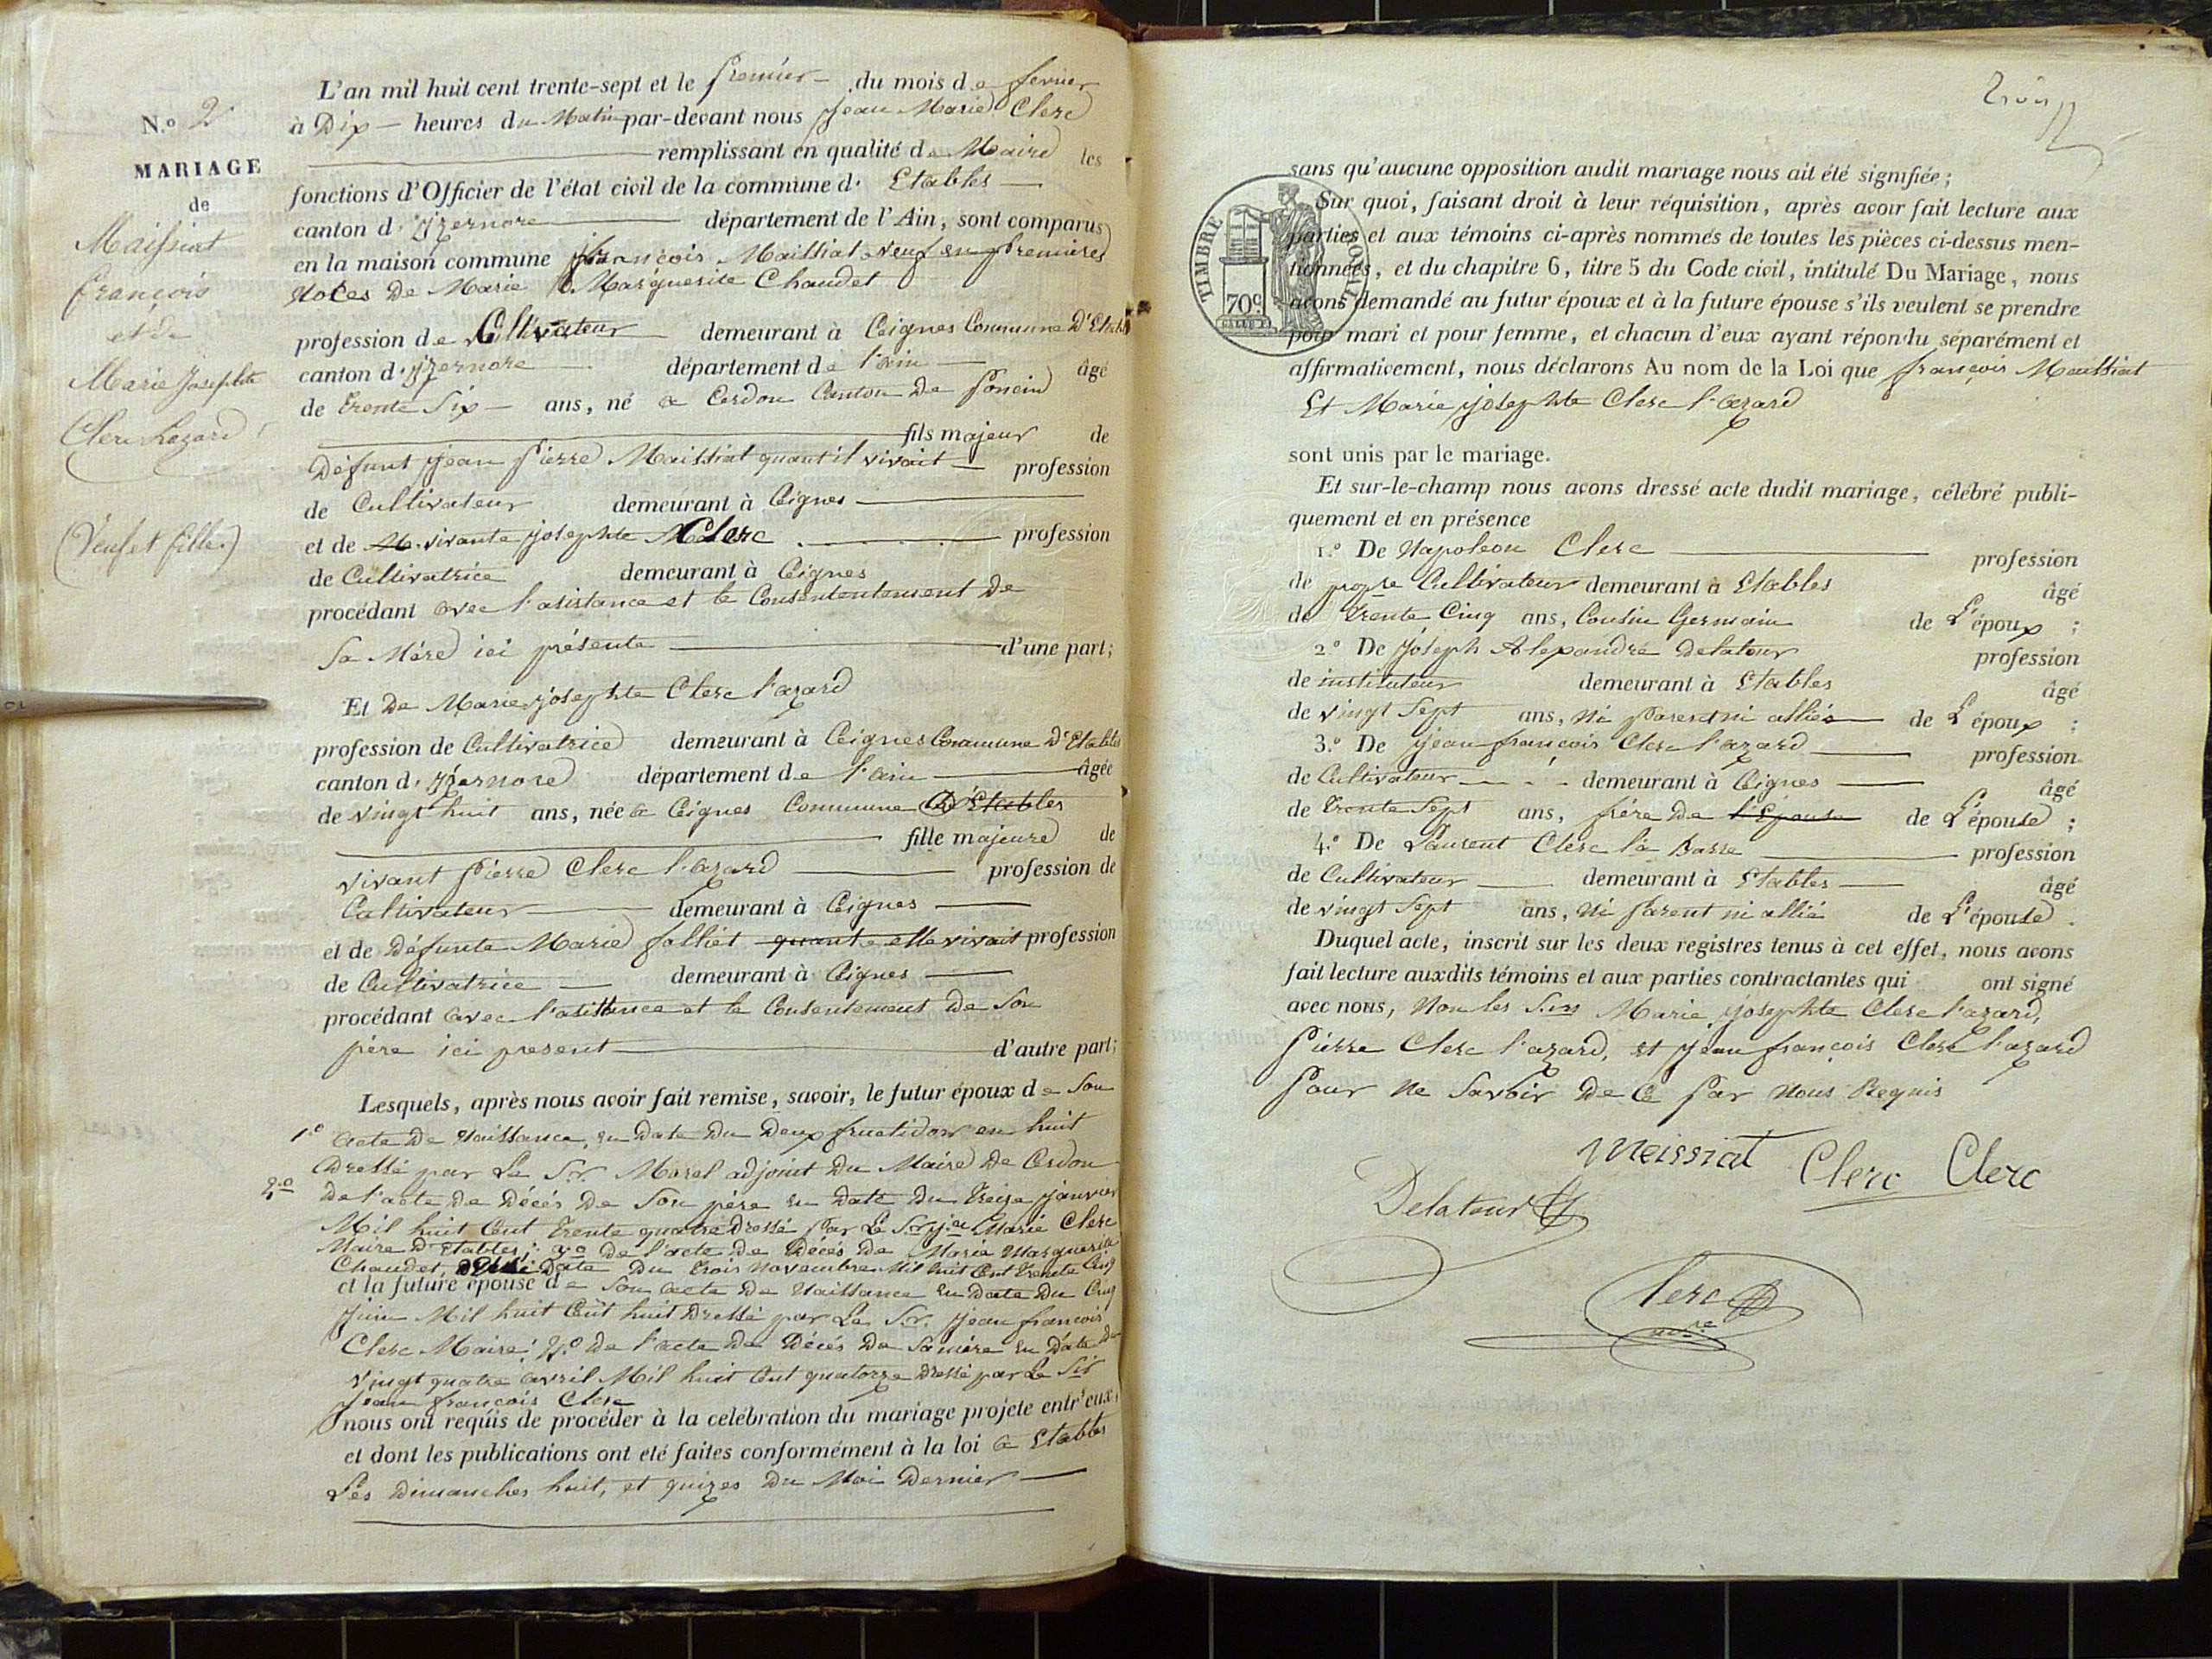 N.o 2
MARIAGE
de
Maissiat
françois
et de
Marie Josephte
Clerc Lazard
(Veuf et fille)
L'an mil huit cent trente-sept et le premier du mois de fevrier
à Dix heures du Matin par-devant nous jean Marie Clerc
remplissant en qualité de Maire les
fonctions d'Officier de l'état civil de la commune d' Etables
canton d'yzernore département de l'Ain, sont comparus
en la maison commune françois Maissiat veuf en premieres
Noces De Marie Marguerite Chaudet
profession de Cultivateur demeurant à Ceignes Commune D'Etables
canton d'yzernore département de l'ain âgé
de trente Six ans, né a Cerdon Canton De poncin
fils majeur de
Défunt jean pierre Maissiat quant il vivait profession
de Cultivateur demeurant à Ceignes
et de vivante josephte Clerc profession
de Cultivatrice demeurant à Ceignes
procédant avec l'asistance et le Consententement De
Sa Mére ici présente d'une part;
Et De Marie josephte Clerc l'azard
profession de Cultivatrice demeurant à Ceignes Commune D'Etables
canton d'yzernore département de l'ain âgée
de vingt huit ans, née a Ceignes Commune D'Etables
fille majeure de
vivant pierre Clerc l'azard profession de
Cultivateur demeurant à Ceignes
et de Défunte Marie folliet quante elle vivait profession
de Cultivatrice demeurant à Ceignes
procédant avec l'asistence et le Consentement De Son
pére ici present d'autre part;
Lesquels, après nous avoir fait remise, savoir, le futur époux de Son
1.o acte De Naissance, en Date Du Deux fructidor en huit
Dressé par Le S.r Morel adjoint Du Maire De Cerdon
2.o De l'acte De Décés De Son pére en Date Du treize janvier
Mil huit Cent trente quatre Dressé par Le S.r j.n Marie Clerc
Maire D'Etables; 3.o De l'acte De Décés De Marie Marguerite
Chaudet, Date Du trois novembre Mil huit Cent trente Cinq
et la future épouse de Son acte De Naissance en Date Du Cinq
juin Mil huit Cent huit Dressé par Le S.r jean françois
Clerc Maire; 2.o De l'acte De Décés De Sa mére en Date Du
vingt quatre avril Mil huit Cent quatorze Dressé par Le Sir
jean françois Clerc
nous ont requis de procéder à la celébration du mariage projeté entr'eux,
et dont les publications ont été faites conformément à la loi a Etables
Les Dimanches huit, et quizes Du Moi Dernier
trois
sans qu'aucune opposition audit mariage nous ait été signifiée;
TIMBRE ROYAL
70c.
Sur quoi, faisant droit à leur réquisition, après avoir fait lecture aux
parties et aux témoins ci-après nommés de toutes les pièces ci-dessus men-
tionnées, et du chapitre 6, titre 5 du Code civil, intitulé Du Mariage, nous
avons demandé au futur époux et à la future épouse s'ils veulent se prendre
pour mari et pour femme, et chacun d'eux ayant répondu séparément et
affirmativement, nous déclarons Au nom de la Loi que françois Maissiat
Et Marie josephte Clerc l'azard
sont unis par le mariage.
Et sur-le-champ nous avons dressé acte dudit mariage, célébré publi-
quement et en présence
1.o De Napoleon Clerc profession
de propre Cultivateur demeurant à Etables âgé
de trente Cinq ans, Cousin Germain de L'époux ;
2.o De joseph Alexandre Delatour profession
de instituteur demeurant à Etables âgé
de vingt Sept ans, Ni parent ni alliés de L'époux ;
3.o De jean françois Clerc l'azard profession
de Cultivateur demeurant à Ceignes âgé
de trente Sept ans, frére De l'Epouse de L'épouse ;
4.o De Laurent Clerc la Basse profession
de Cultivateur demeurant à Etables âgé
de vingt Sept ans, Ni parent ni allié de L'épouse.
Duquel acte, inscrit sur les deux registres tenus à cet effet, nous avons
fait lecture auxdits témoins et aux parties contractantes qui ont signé
avec nous, Non les Marie josephte Clerc l'azard,
pierre Clerc l'azard, et jean françois Clerc l'azard
pour ne Savoir De Ce par Nous Requis
meissiat Clerc Clerc
Delatour
Clerc